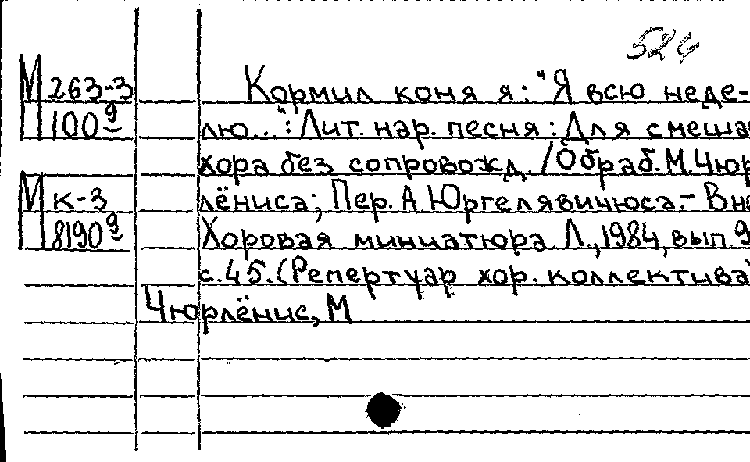 524
М 263-3 Кормил коня я: "Я всю неде-
100 9 лю...": Лит. нар. песня: Для смешан
хора без сопровожд. / Обраб. М. Чюр
М к-3 лёниса; Пер. А Юргелявичюса.- Вне
8190 9 Хоровая миниатюра Л., 1984, вып 9
с. 45. (Репертуар хор. коллектива)
Чюрлёнис, М